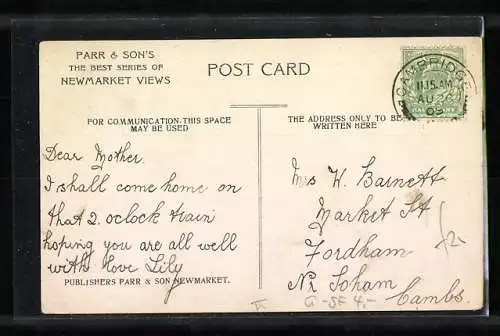 PARR & SON'S
THE BEST SERIES OF
NEWMARKET VIEWS
POST CARD
CAMBRIDGE
11.15 AM
AU
09
FOR COMMUNICATION THIS SPACE
MAY BE USED
THE ADDRESS ONLY TO BE
WRITTEN HERE
Dear Mother.
I shall come home on
that 2. oclock train
hoping you are all well
with love Lily
PUBLISHERS PARR & SON NEWMARKET.
Mrs W. Barnett
Market St
Fordham
Nr Soham
Cambs.
G-SF 4.-